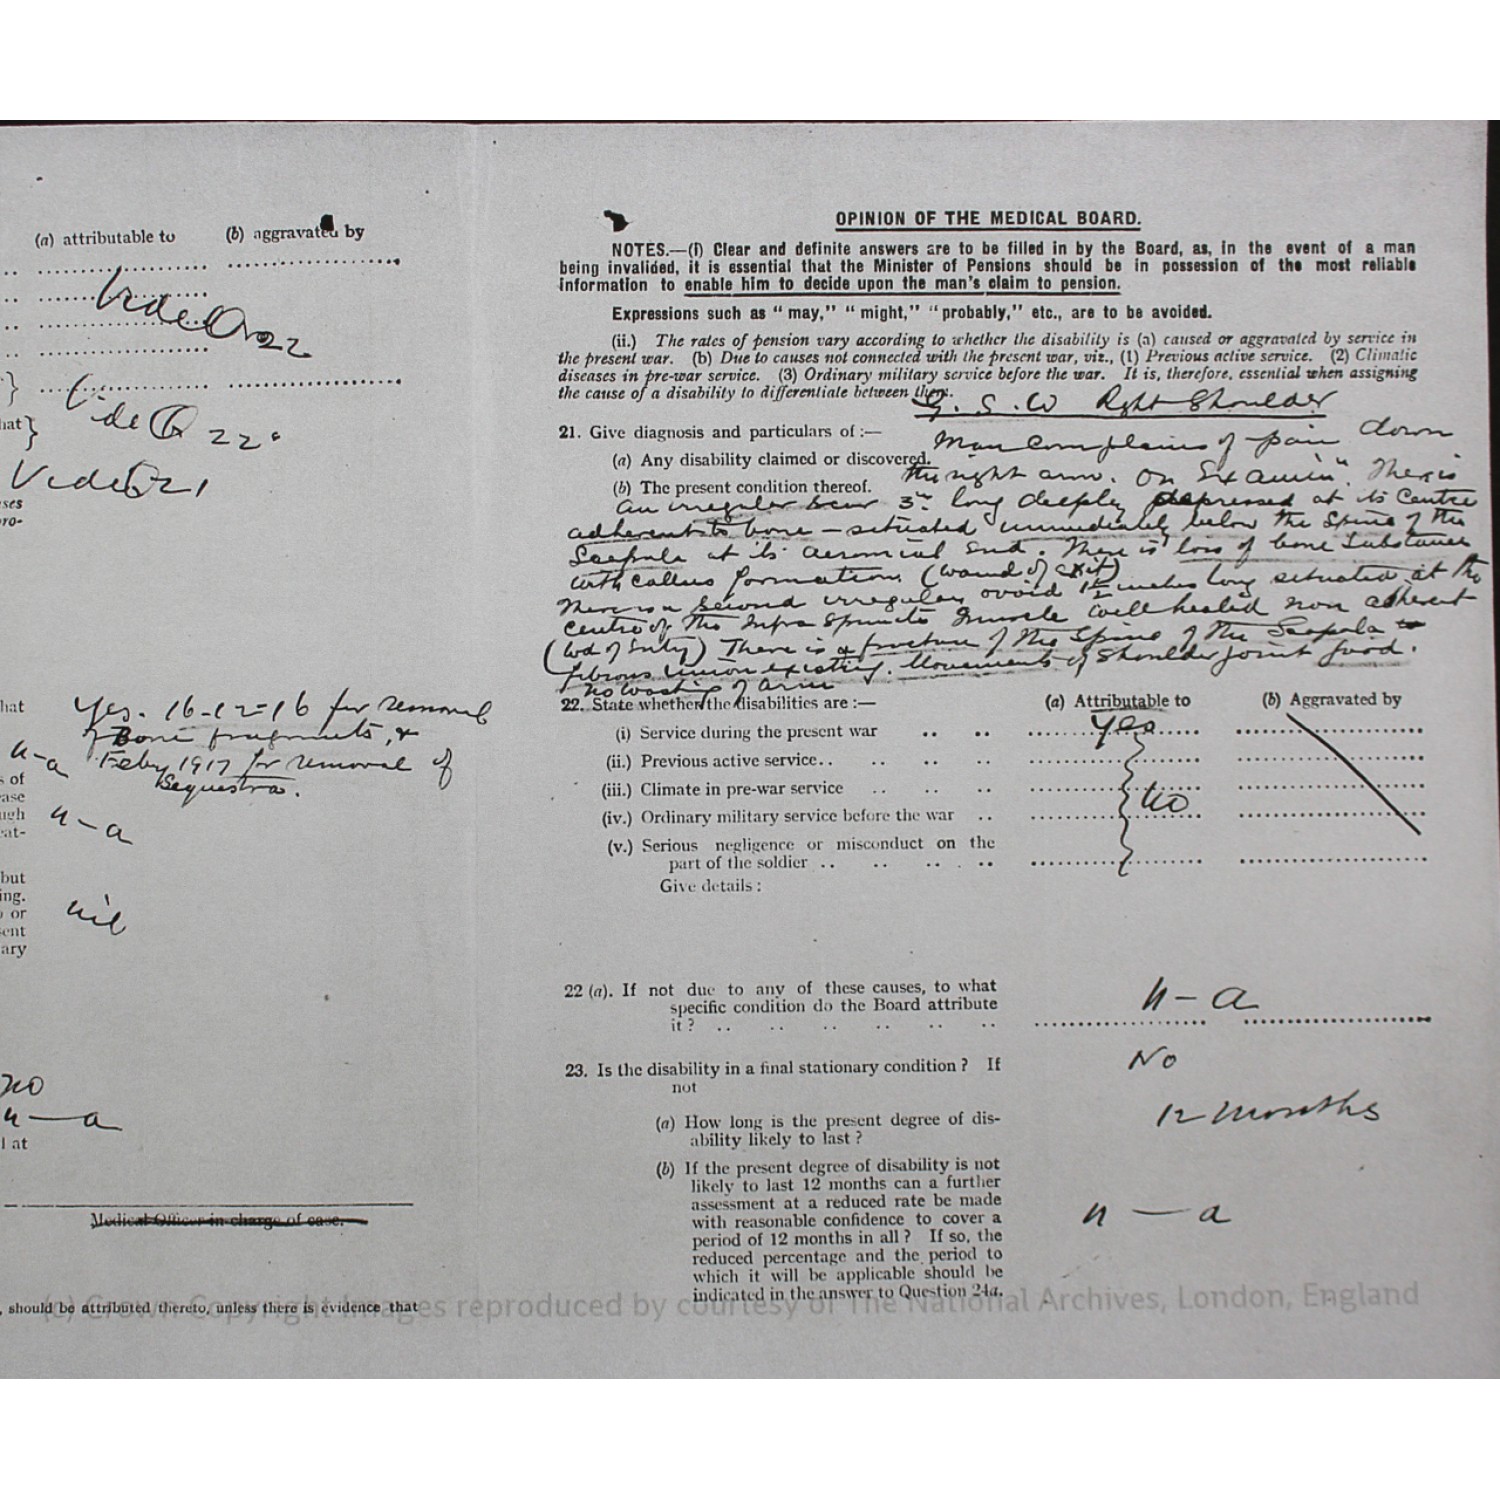 (a) attributable to (b) aggravated by
Vide Q 22
}
hat }
Vide Q 22.
Vide Q 21
ses
ro-
hat
Yes. 16-12-16 for removal
of Bone fragments, &
n-a
Feby 1917 for removal of
Sequestra.
s of
ase
ugh
at-
n-a
but
ing.
o or
sent
ary
nil
no
n-a
l at
Medical Officer in charge of case.
, should be attributed thereto, unless there is evidence that
OPINION OF THE MEDICAL BOARD.
NOTES.—(i) Clear and definite answers are to be filled in by the Board, as, in the event of a man
being invalided, it is essential that the Minister of Pensions should be in possession of the most reliable
information to enable him to decide upon the man's claim to pension.
Expressions such as "may," "might," "probably," etc., are to be avoided.
(ii.) The rates of pension vary according to whether the disability is (a) caused or aggravated by service in
the present war. (b) Due to causes not connected with the present war, viz., (1) Previous active service. (2) Climatic
diseases in pre-war service. (3) Ordinary military service before the war. It is, therefore, essential when assigning
the cause of a disability to differentiate between them.
G.S.W Right Shoulder
21. Give diagnosis and particulars of :—
Man complains of pain down
(a) Any disability claimed or discovered.
the right arm. On Examin". There is
(b) The present condition thereof.
an irregular scar 3" long deeply depressed at its Centre
adherent to bone - situated immediately below the Spine of the
Scapula at its acromial End. There is loss of bone Substance
with callus formation. (wound of exit)
There is a second irregular ovoid 1½ inches long situated at the
centre of the Infra Spinatus Muscle well healed non adherent
(wd of Entry) There is a fracture of the Spine of the Scapula
fibrous Union existing. Movements of Shoulder joint good.
no wasting of arm
22. State whether the disabilities are :— (a) Attributable to (b) Aggravated by
(i) Service during the present war .. .. Yes
(ii.) Previous active service.. .. ..
(iii.) Climate in pre-war service .. .. .. No
(iv.) Ordinary military service before the war ..
(v.) Serious negligence or misconduct on the
part of the soldier .. .. .. ..
Give details :
22 (a). If not due to any of these causes, to what
specific condition do the Board attribute
it ? .. .. .. .. .. ..
n-a
23. Is the disability in a final stationary condition ? If
not
No
(a) How long is the present degree of dis-
ability likely to last ?
12 months
(b) If the present degree of disability is not
likely to last 12 months can a further
assessment at a reduced rate be made
with reasonable confidence to cover a
period of 12 months in all ? If so, the
reduced percentage and the period to
which it will be applicable should be
indicated in the answer to Question 24a.
n-a
(c) Crown Copyright Images reproduced by courtesy of The National Archives, London, England